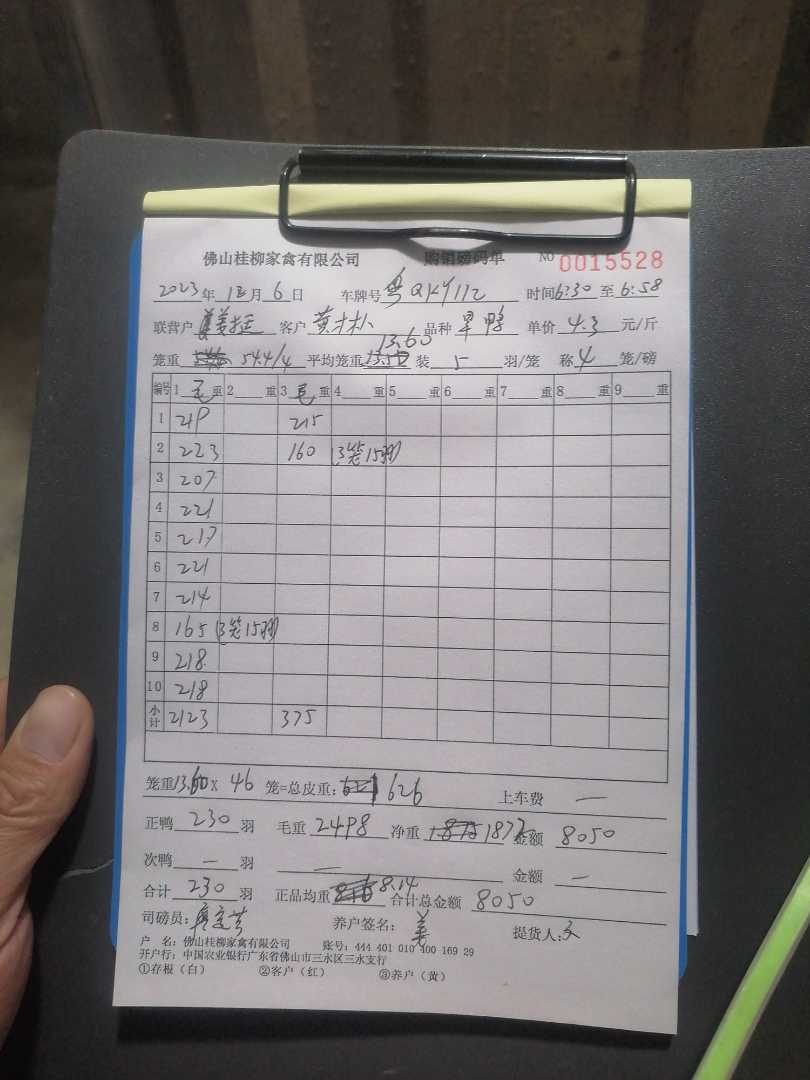 佛山桂柳家禽有限公司 购销磅码单 NO 0015528
2023年 12月 6日 车牌号 粤QKY112 时间6:30 至 6:58
联营户 客户 黄才朴 品种 旱鸭 单价 4.3 元/斤
13.60
笼重 54.4/4 平均笼重 13.57 装 5 羽/笼 称 4 笼/磅
编号 1 毛 重 2 重 3 毛 重 4 重 5 重 6 重 7 重 8 重 9 重
1 219 215
2 223 160 (3笼15羽)
3 207
4 221
5 217
6 221
7 214
8 165 (3笼15羽)
9 218
10 218
小计 2123 375
笼重13.60 X 46 笼=总皮重: 626 上车费 —
正鸭 230 羽 毛重 2498 净重 1875 1872 金额 8050
次鸭 — 羽 — 金额 —
合计 230 羽 正品均重 8.14 合计总金额 8050
司磅员: 养户签名: 姜 提货人:
户 名: 佛山桂柳家禽有限公司 账号: 444 401 010 400 169 29
开户行: 中国农业银行广东省佛山市三水区三水支行
①存根(白) ②客户(红) ③养户(黄)